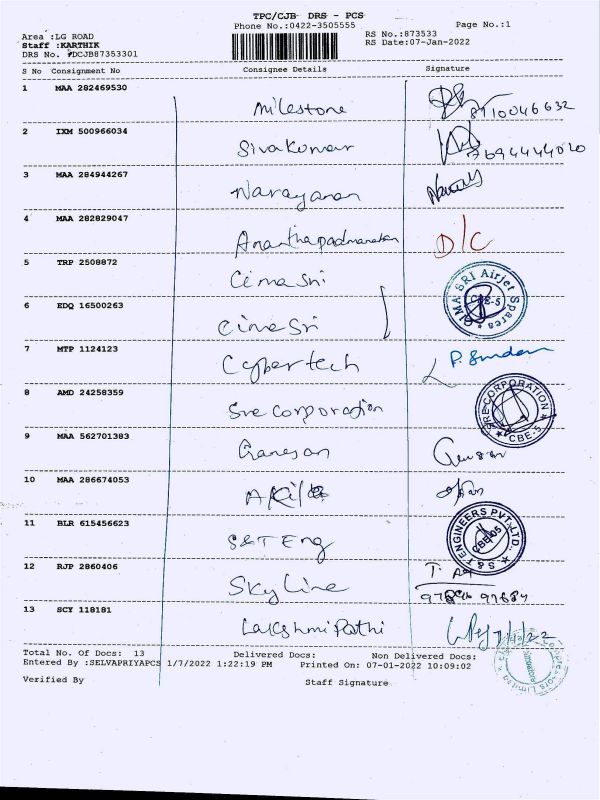 TPC/CJB DRS - PCS
Phone No.:0422-3505555
Page No.:1
Area :LG ROAD
RS No.:873533
Staff :KARTHIK
RS Date:07-Jan-2022
DRS No. :DCJB87353301
S No Consignment No Consignee Details Signature
1 MAA 282469530 Milestone 8910046632
2 IXM 500966034 Sivakumar 7694444020
3 MAA 284944267 Narayanan
4 MAA 282829047 Ananthapadmanaban D/C
5 TRP 2508872 Cima Sri CIMA SRI Airjet Spares CBE-5
6 EDQ 16500263 Cima Sri
7 MTP 1124123 Cybertech P. Sundar
8 AMD 24258359 Sre Corporation SRE CORPORATION CBE-5
9 MAA 562701383 Ganesan
10 MAA 286674053
11 BLR 615456623 S&T Eng S & T ENGINEERS PVT. LTD. CBE-05
12 RJP 2860406 Skyline
13 SCY 118181 Lakshmi Pathi 7/1/22
Total No. Of Docs: 13 Delivered Docs: Non Delivered Docs:
Entered By :SELVAPRIYAPCS 1/7/2022 1:22:19 PM Printed On: 07-01-2022 10:09:02
Verified By Staff Signature